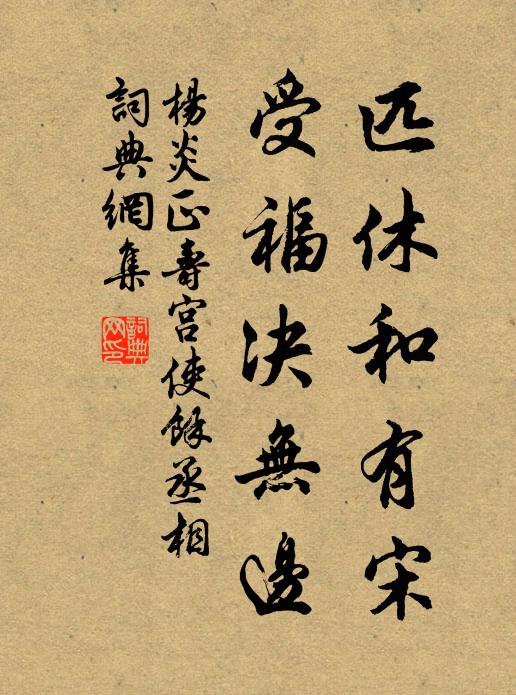 匹休和有宋
受福決無邊
楊炎正壽宮使餘丞相
詞典網集
詞典網印